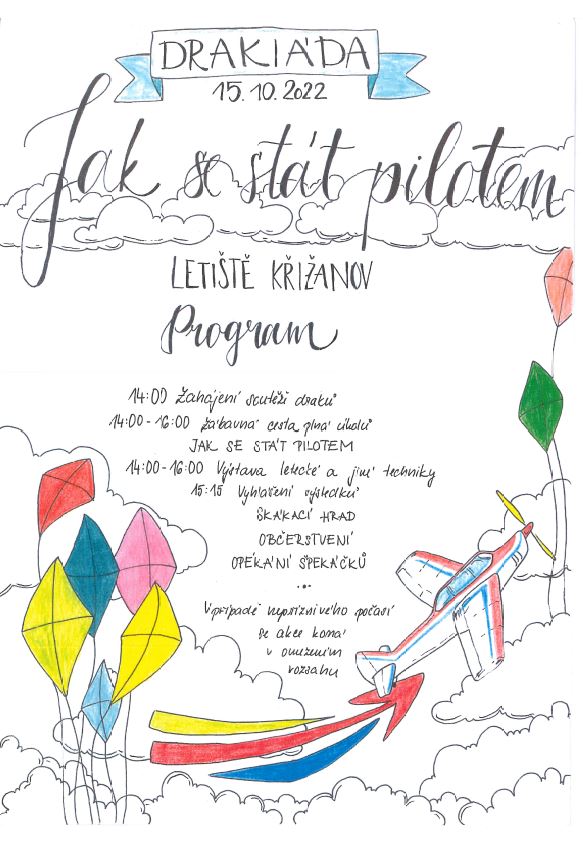 DRAKIÁDA
15. 10. 2022
Jak se stát pilotem
LETIŠTĚ KŘIŽANOV
Program
14:00 Zahájení soutěží draků
14:00 - 16:00 Zábavná cesta plná úkolů
JAK SE STÁT PILOTEM
14:00 - 16:00 Výstava letecké a jiné techniky
15:15 Vyhlášení výsledků
SKÁKACÍ HRAD
OBČERSTVENÍ
OPÉKÁNÍ ŠPEKÁČKŮ
...
V případě nepříznivého počasí
se akce koná
v omezeném
rozsahu